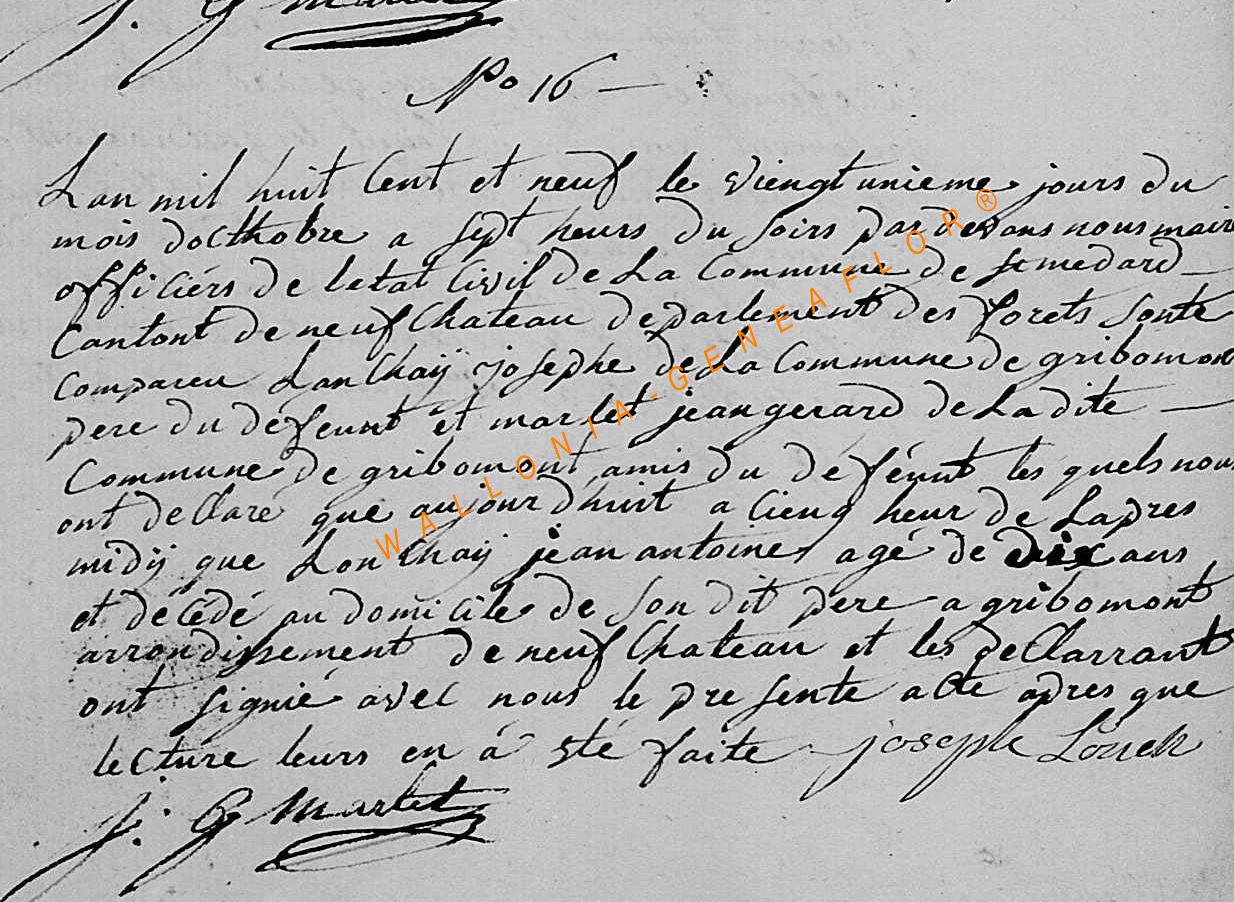 J. G Marlet
No 16 —
Lan mil huit Cent et neuf le viengtunieme jours du
mois docthobre a sept heurs du soirs pardevans nous maire
officiérs de letat Civil de La Commune de st medard
Cantont de neufChateau departement des forets sonte
compareu Lanchaÿ josephe de La Commune de gribomont
pere du défeunt et marlet jean gerard de La dite —
Commune de gribomont amis du défeunt les quels nous
ont deClaré que aujourdhuit a cienq heur de Lapres
midÿ que Lonchaÿ jean antoine agé de dix ans
et décédé au domicile de son dit pere a gribomont
arrondissement de neufChateau et les deClarrant
ont signié avec nous le presente acte apres que
lecture leurs en á eté faite joseph Lonch
J. G Marlet
WALLONIA-GENEAFLOR®